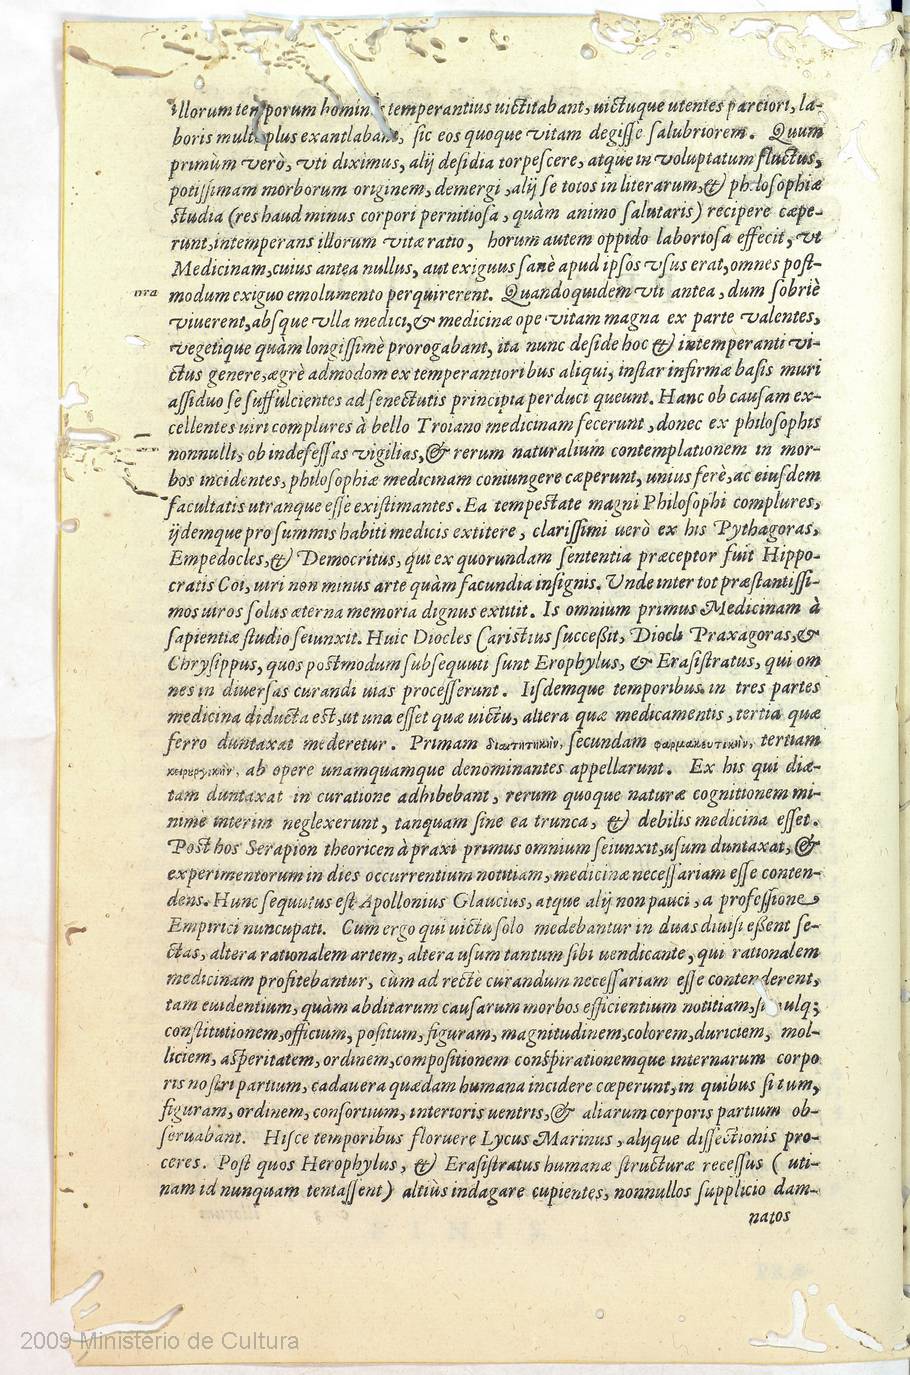 illorum temporum homines temperantius uictitabant, uictuque utentes parciori, la-
boris multo plus exantlabant, sic eos quoque vitam degisse salubriorem. Quum
primùm verò, vti diximus, alij desidia torpescere, atque in voluptatum fluctus,
potissimam morborum originem, demergi, alij se totos in literarum, & philosophiæ
studia (res haud minus corpori pernitiosa, quàm animo salutaris) recipere cæpe-
runt, intemperans illorum vitæ ratio, horum autem oppido laboriosa effecit, vt
Medicinam, cuius antea nullus, aut exiguus sanè apud ipsos vsus erat, omnes post-
modum exiguo emolumento perquirerent. Quandoquidem vti antea, dum sobriè
viuerent, absque vlla medici, & medicinæ ope vitam magna ex parte valentes,
vegetique quàm longissimè prorogabant, ita nunc deside hoc & intemperanti vi-
ctus genere, ægrè admodom ex temperantioribus aliqui, instar infirmæ basis muri
assiduo se suffulcientes ad senectutis principia perduci queunt. Hanc ob causam ex-
cellentes uiri complures à bello Troiano medicinam fecerunt, donec ex philosophis
nonnulli, ob indefessas vigilias, & rerum naturalium contemplationem in mor-
bos incidentes, philosophiæ medicinam coniungere cæperunt, unius ferè, ac eiusdem
facultatis utranque esse existimantes. Ea tempestate magni Philosophi complures,
ijdemque pro summis habiti medicis extitere, clarissimi uerò ex his Pythagoras,
Empedocles, & Democritus, qui ex quorundam sententia præceptor fuit Hippo-
cratis Coi, uiri non minus arte quàm facundia insignis. Vnde inter tot præstantissi-
mos uiros solus æterna memoria dignus extitit. Is omnium primus Medicinam à
sapientiæ studio seiunxit. Huic Diocles Caristius successit, Diocli Praxagoras, &
Chrysippus, quos postmodum subsequuti sunt Erophylus, & Erasistratus, qui om
nes in diuersas curandi uias processerunt. Iisdemque temporibus in tres partes
medicina diducta est, ut una esset quæ uictu, altera quæ medicamentis, tertia quæ
ferro duntaxat mederetur. Primam διαιτητικὴν, secundam φαρμακευτικὴν, tertiam
χειρυργικὴν, ab opere unamquamque denominantes appellarunt. Ex his qui diæ-
tam duntaxat in curatione adhibebant, rerum quoque naturæ cognitionem mi-
nime interim neglexerunt, tanquam sine ea trunca, & debilis medicina esset.
Post hos Serapion theoricen à praxi primus omnium seiunxit, usum duntaxat, &
experimentorum in dies occurrentium notitiam, medicinæ necessariam esse conten-
dens. Hunc sequutus est Apollonius Glaucius, atque alij non pauci, a professione
Empirici nuncupati. Cum ergo qui uictu solo medebantur in duas diuisi essent se-
ctas, altera rationalem artem, altera usum tantum sibi uendicante, qui rationalem
medicinam profitebantur, cùm ad rectè curandum necessariam esse contenderent,
tam euidentium, quàm abditarum causarum morbos efficientium notitiam,
constitutionem, officium, positum, figuram, magnitudinem, colorem, duriciem, mol-
liciem, asperitatem, ordinem, compositionem conspirationemque internarum corpo
ris nostri partium, cadauera quædam humana incidere cœperunt, in quibus situm,
figuram, ordinem, consortium, interioris uentris, & aliarum corporis partium ob-
seruabant. Hisce temporibus floruere Lycus Marinus, alijque dissectionis pro-
ceres. Post quos Herophylus, & Erasistratus humanæ structuræ recessus (uti-
nam id nunquam tentassent) altiùs indagare cupientes, nonnullos supplicio dam-
natos
2009 Ministério de Cultura